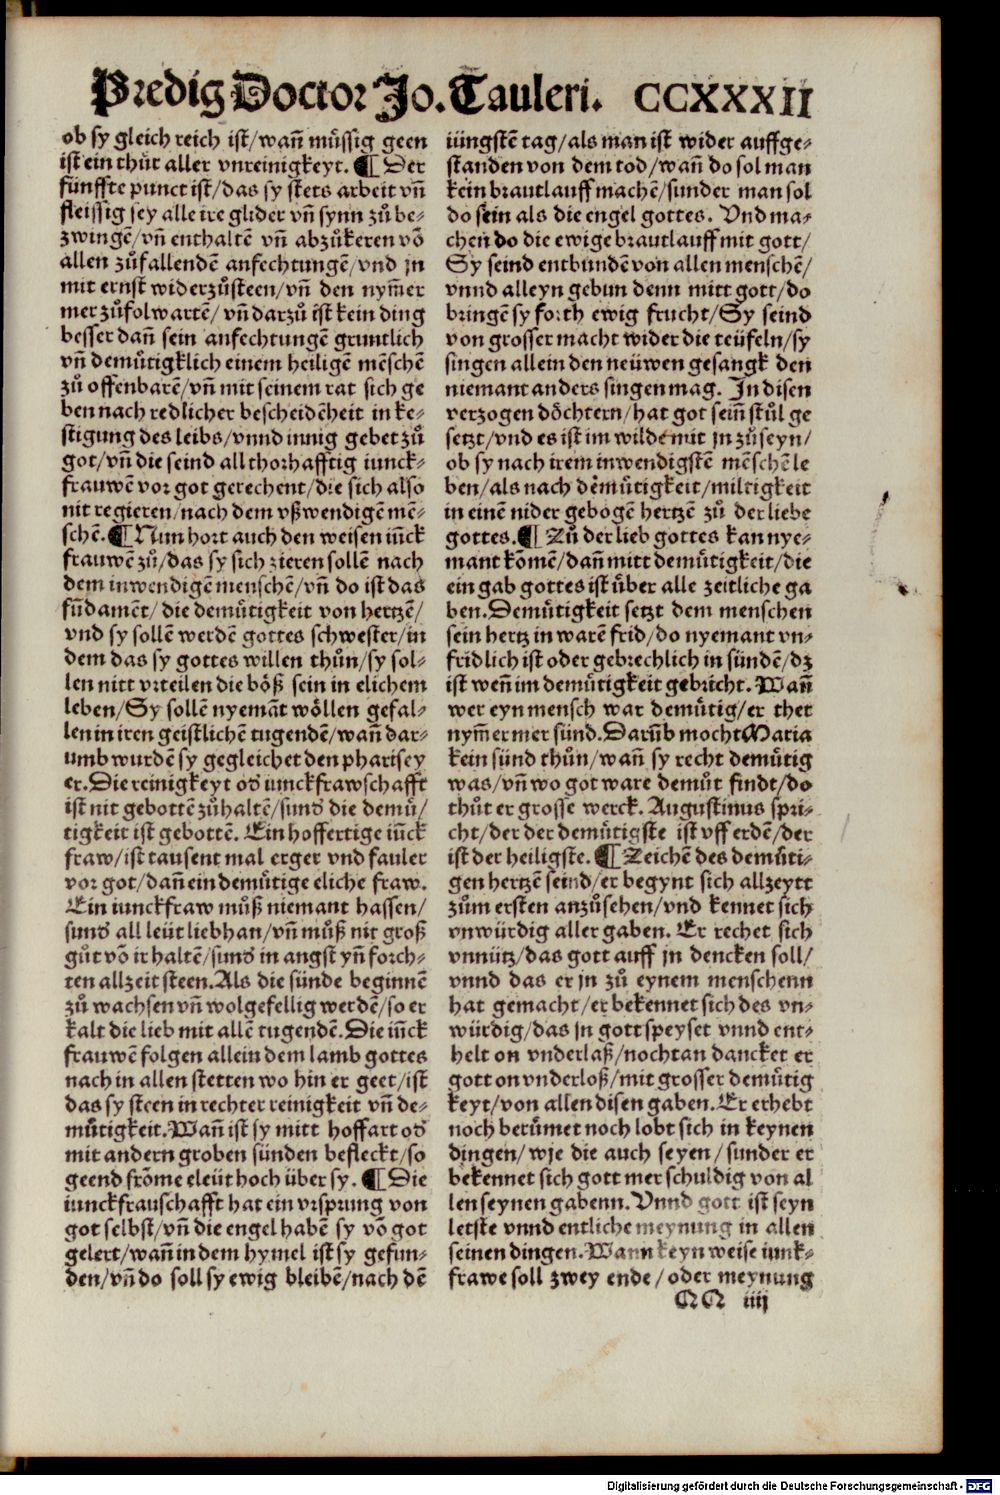 Predig Doctor Jo. Tauleri. CCXXXII
ob sy gleich reich ist/wañ müssig geen
ist ein thür aller vnreinigkeyt. ¶ Der
fünffte punct ist/das sy stets arbeit vñ
fleissig sey alle ire glider vñ synn zů be⸗
zwingẽ/vñ enthaltẽ vñ abzůkeren võ
allen zůfallendẽ anfechtungẽ/vnd jn
mit ernst widerzůsteen/vñ den nym̃er
mer zůfolwartẽ/ vñ darzů ist kein ding
besser dañ sein anfechtungẽ gruntlich
vñ demůtigklich einem heiligẽ mẽschẽ
zů offenbarẽ/vñ mit seinem rat sich ge
ben nach redlicher bescheidẽheit in ke⸗
stigung des leibs/vnnd innig gebet zů
got/vñ die seind all thorhafftig iunck⸗
frauwẽ vor got gerechent/die sich also
nit regieren/nach dem vßwendigẽ mẽ⸗
schẽ. ¶ Nun hort auch den weisen iũck
frauwẽ zů/das sy sich zieren sollẽ nach
dem inwendigẽ menschẽ/vñ do ist das
fũdamẽt/ die demůtigkeit von hertzẽ/
vnd sy sollẽ werdẽ gottes schwester/in
dem das sy gottes willen thůn/sy sol⸗
len nitt vrteilen die bôß sein in elichem
leben/Sy sollẽ nyemãt wôllen gefal⸗
len in iren geistlichẽ tugendẽ/wañ dar⸗
umb wurdẽ sy gegleichet den pharisey
er. Die reinigkeyt oď iunckfrawschafft
ist nit gebottẽ zůhaltẽ/sunď die demů/
tigkeit ist gebottẽ. Ein hoffertige iũck
fraw/ist tausent mal erger vnd fauler
vor got/dañ ein demůtige eliche fraw.
Ein iunckfraw můß niemant hassen/
sunď all leüt liebhan/vñ můß nit groß
gůt võ ir haltẽ/sunď in angst yñ forch⸗
ten allzeit steen. Als die sünde beginnẽ
zů wachsen vñ wolgefellig werdẽ/so er
kalt die lieb mit allẽ tugendẽ. Die iũck
frauwẽ folgen allein dem lamb gottes
nach in allen stetten wo hin er geet/ist
das sy steen in rechter reinigkeit vñ de⸗
můtigkeit. Wañ ist sy mitt hoffart oď
mit andern groben sünden befleckt/so
geend frõme eleüt hoch über sy. ¶ Die
iunckfrauschafft hat ein vrsprung von
got selbst/vñ die engel habẽ sy võ got
gelert/wañ in dem hymel ist sy gefun⸗
den/vñ do soll sy ewig bleibẽ/nach dẽ
iüngstẽ tag/als man ist wider auffge⸗
standen von dem tod/wañ do sol man
kein brautlauff machẽ/sunder man sol
do sein als die engel gottes. Vnd ma⸗
chen do die ewige brautlauff mit gott/
Sy seind entbundẽ von allen menschẽ/
vnnd alleyn gebun denn mitt gott/do
bringẽ sy forth ewig frucht/Sy seind
von grosser macht wider die teüfeln/sy
singen allein den neüwen gesangk den
niemant anders singen mag. In disen
verzogen dôchtern/hat got seiñ stůl ge
setzt/vnd es ist im wilde mit jn zů seyn/
ob sy nach irem inwendigstẽ mẽschẽ le
ben/als nach dẽmůtigkeit/miltigkeit
in einẽ nider gebogẽ hertzẽ zů der liebe
gottes. ¶ Zů der lieb gottes kan nye⸗
mant kõmẽ/dañ mitt demůtigkeit/die
ein gab gottes ist über alle zeitliche ga
ben. Demůtigkeit setzt dem menschen
sein hertz in warẽ frid/do nyemant vn⸗
fridlich ist oder gebrechlich in sündẽ/dz
ist weñ im demůtigkeit gebricht. Wañ
wer eyn mensch war demůtig/er thet
nym̃er mer sünd. Darũb mocht Maria
kein sünd thůn/wañ sy recht demůtig
was/vñ wo got ware demůt findt/do
thůt er grosse werck. Augustinus spri⸗
cht/der der demůtigste ist vff erdẽ/der
ist der heiligste. ¶ Zeichẽ des demůti⸗
gen hertzẽ seind/er begynt sich allzeytt
zům ersten anzůsehen/vnd kennet sich
vnwürdig aller gaben. Er rechet sich
vnnütz/das gott auff jn dencken soll/
vnnd das er jn zů eynem menschenn
hat gemacht/er bekennet sich des vn⸗
würdig/das jn gott speyset vnnd ent⸗
helt on vnderlaß/nochtan dancket er
gott on vnderloß/mit grosser demůtig
keyt/von allen disen gaben. Er erhebt
noch berůmet noch lobt sich in keynen
dingen/wje die auch seyen/sunder er
bekennet sich gott mer schuldig von al
len seynen gabenn. Vnnd gott ist seyn
letste vnnd entliche meynung in allen
seinen dingen. Wann keyn weise iunk⸗
frawe soll zwey ende/oder meynung
QQ iiij
Digitalisierung gefördert durch die Deutsche Forschungsgemeinschaft - DFG